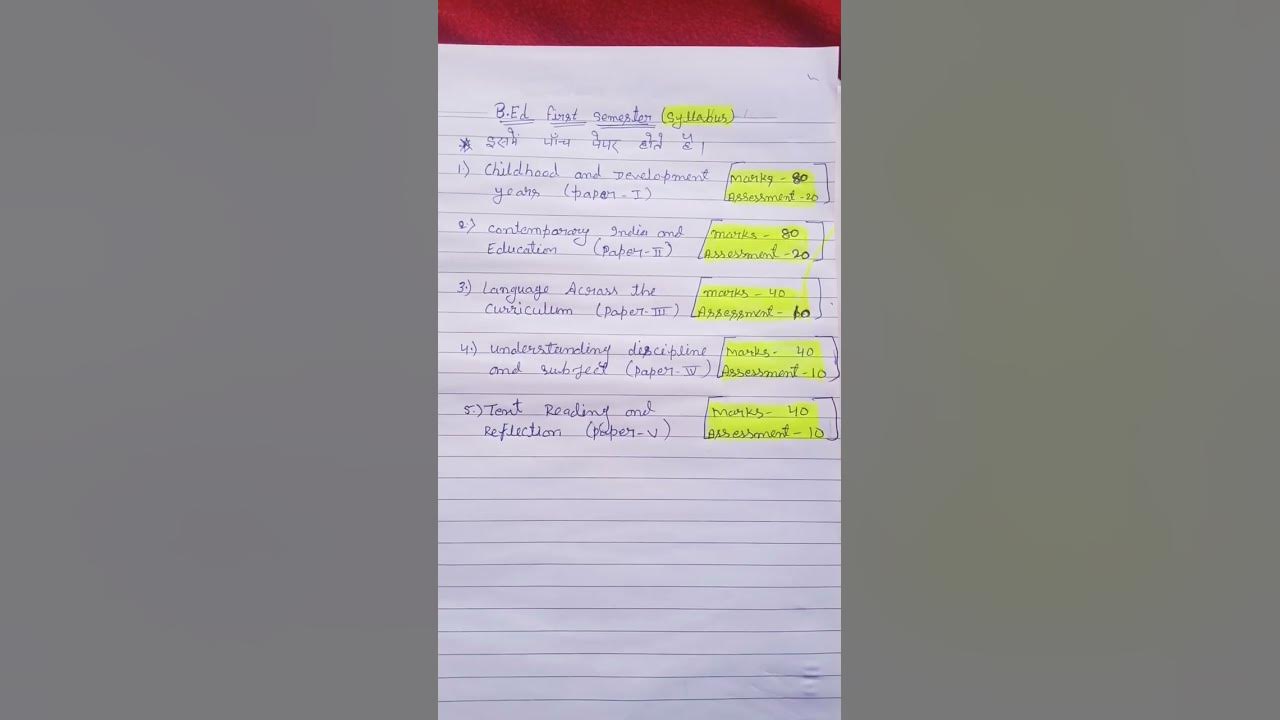 B.Ed first semester (syllabus)
* इसमें पाँच पेपर होते है।
1.) Childhood and Development
years (paper-I)
[Marks - 80
Assessment - 20]
2.) Contemporary India and
Education (Paper-II)
[Marks - 80
Assessment - 20]
3.) Language Across the
curriculum (Paper-III)
[marks - 40
Assessment - 10]
4.) understanding discipline
and subject (paper-IV)
[Marks - 40
Assessment - 10]
5.) Text Reading and
Reflection (paper-V)
[Marks - 40
Assessment - 10]